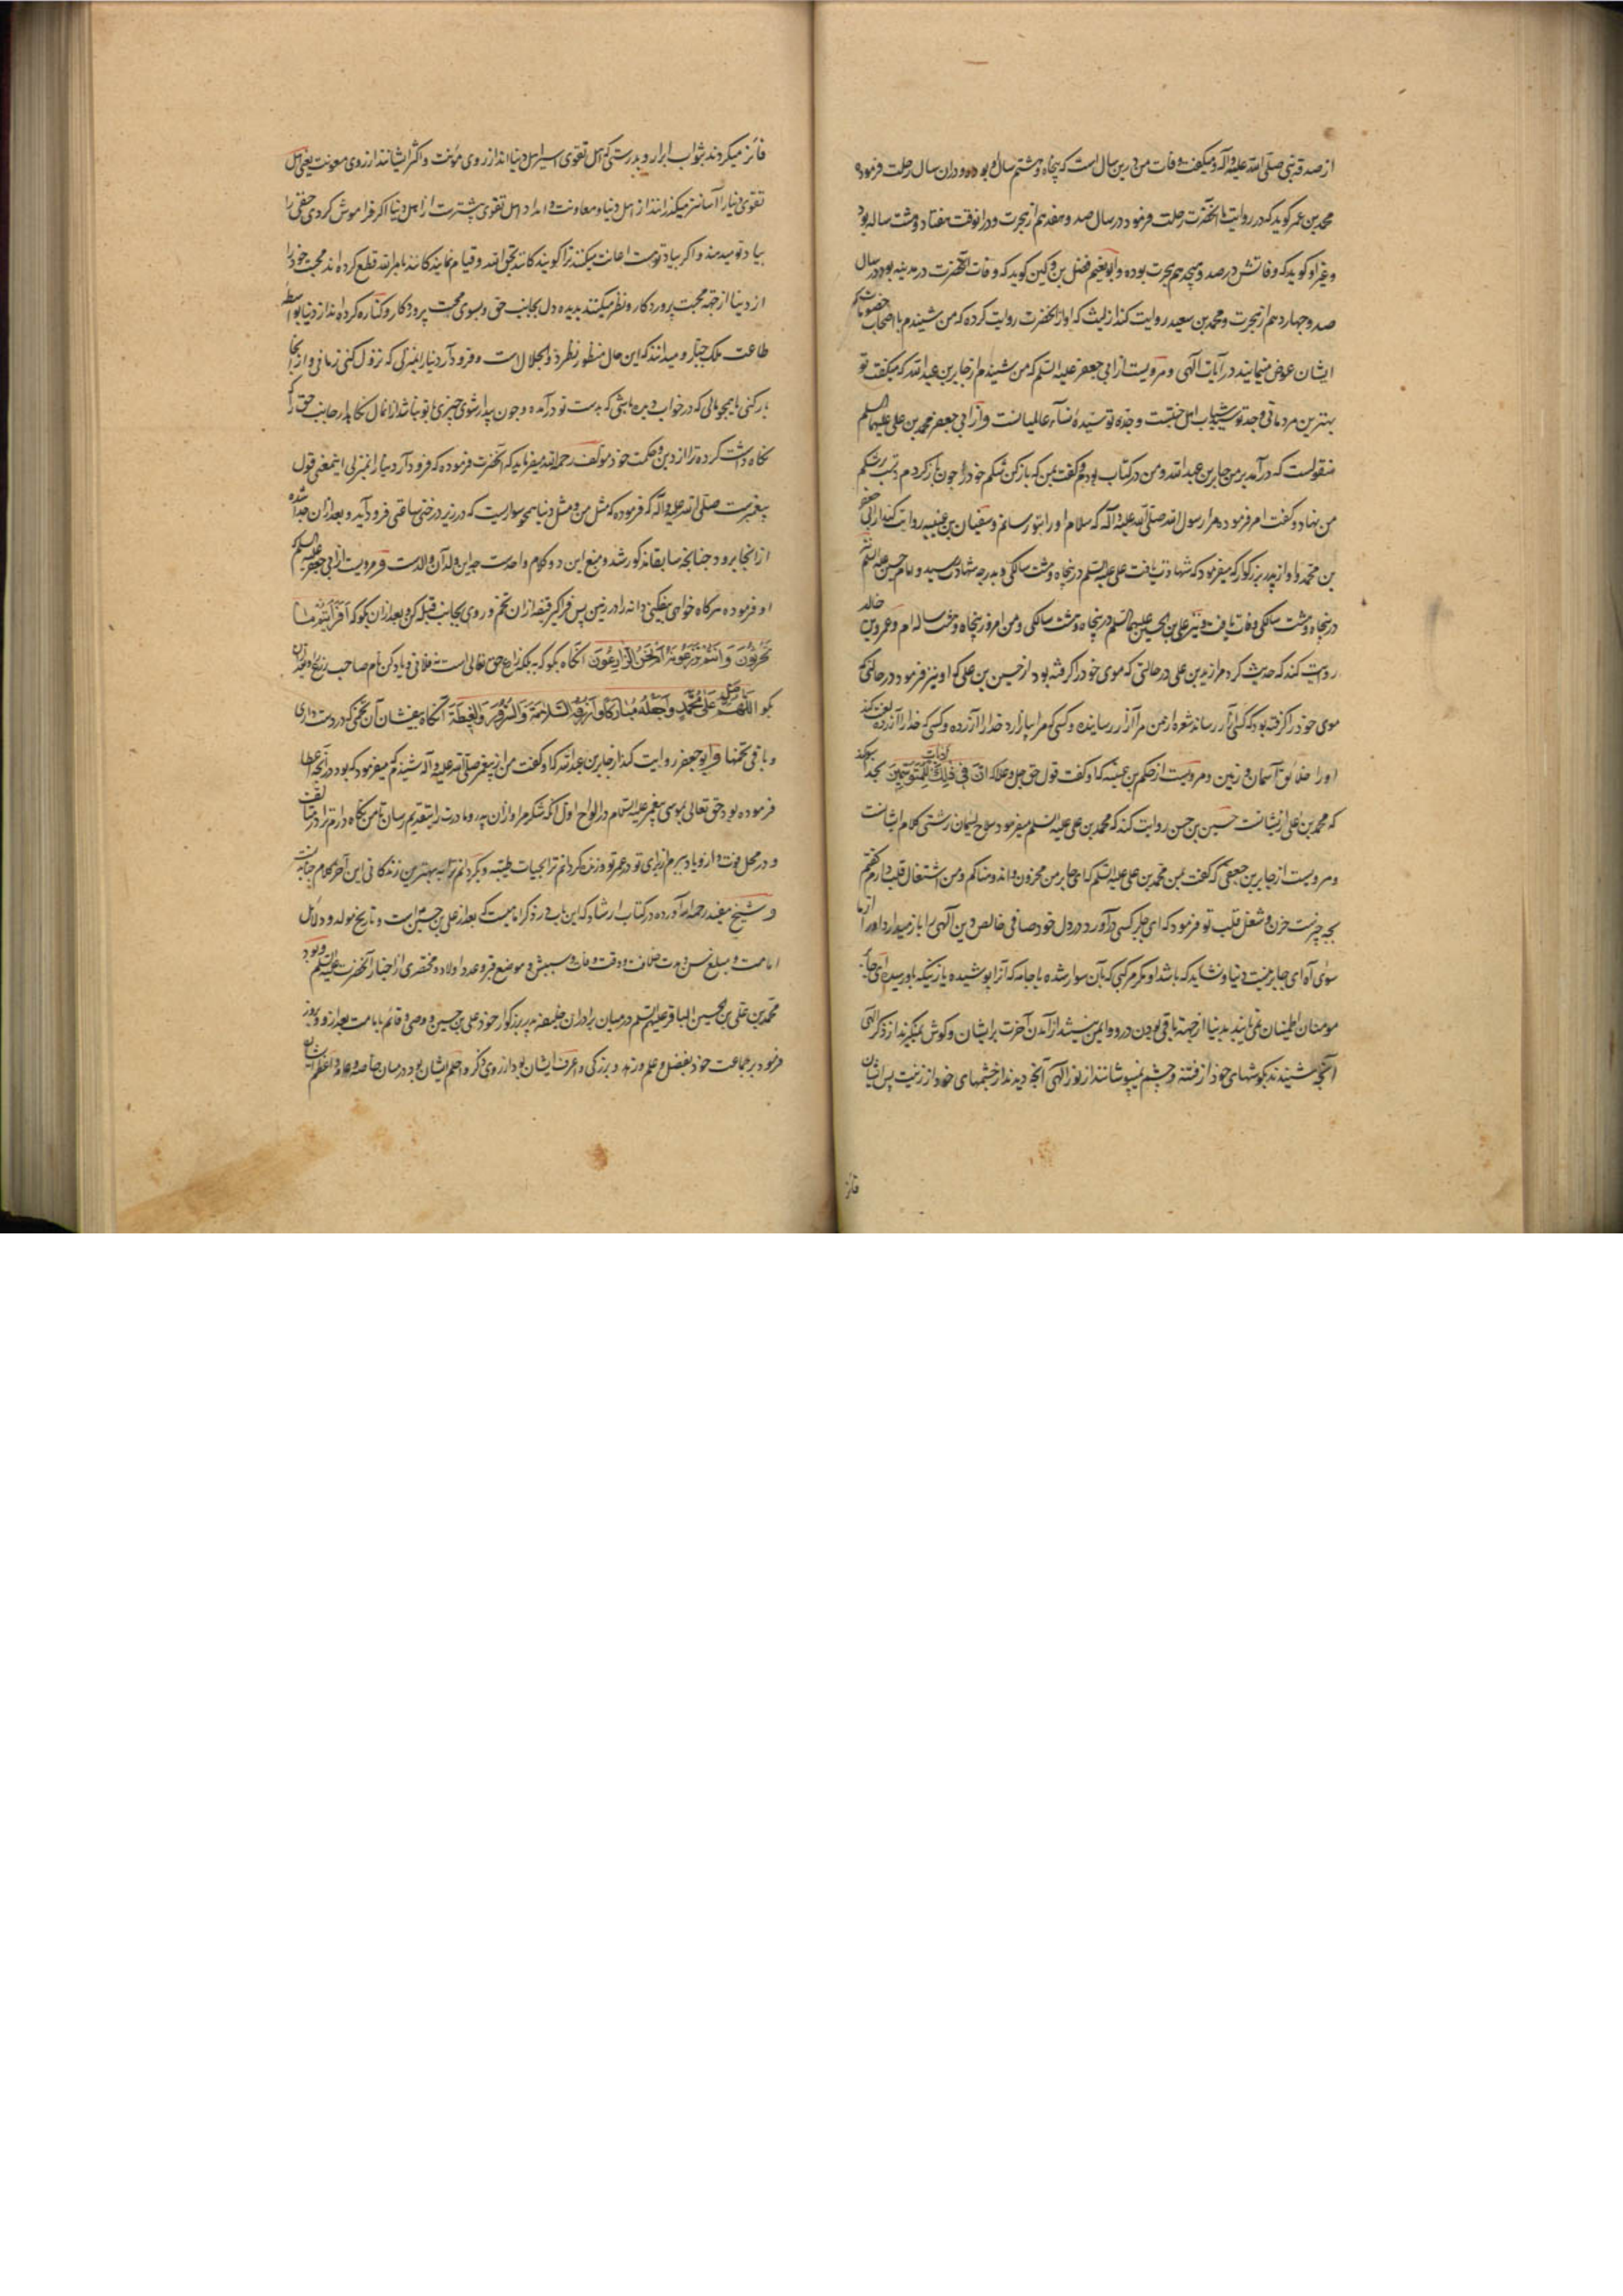 از صدقه نبی صلی الله علیه و آله و میگفت وفات من درین سال است که پنجاه و هشتم سال بود و در آن سال رحلت فرمود و
محمد بن عمر کوید که در روایت ما آنحضرت رحلت فرمود در سال صد و هفدهم از هجرت و در آنوقت هفتاد و هشت ساله بود
و غیر او کوید که وفاتش در صد و هیجدهم هجرت بوده و ابو نعیم فضل بن دکین کوید که وفات آنحضرت در مدینه بود در سال
صد و چهاردهم از هجرت و محمد بن سعید روایت کند از لیث که او از آنحضرت روایت کرده که من شنیدم با اصحاب خصومات
ایشان عوض مینمایند در آیات الهی و مرویست از ابی جعفر علیه السلم که من شنیدم از جابر بن عبد الله که میگفت تو
بهترین مردمانی و جد تو سید شباب اهل جنتست و جده تو سیده نساء عالمیانست و از ابی جعفر محمد بن علی علیهما السلم
منقولست که در آمد بر من جابر بن عبد الله و من در کتاب بودم و گفت بمن که باز کن شکم خود را چون باز کردم شکم
من نهاد و گفت امر فرموده مرا رسول الله صلی الله علیه و آله که سلام او را بتو رسانم و سفیان بن عیینه روایت کند از جعفر
بن محمد و او از پدر بزرکوار که میفرمود که شهادت یافت علی علیه السلم در پنجاه و هشت سالکی و بدرجه شهادت رسید و امام حسین علیه السلم
در پنجاه و هشت سالکی وفات یافت و نیز علی بن الحسین علیهما السلم در پنجاه و هشت سالکی و من امروز پنجاه و هشت ساله ام و عمرو بن خالد
روایت کند که حدیث کرد مرا زید بن علی در حالتی که موی خود را گرفته بود از حسین بن علی که او نیز فرمود در حالتی که
موی خود را گرفته بود که کسی آزار رساند شعره از من مرا آزار رسانیده و کسی که مرا بیازارد خدا را آزرده و کسی که خدا را آزرده لعن کند
او را خلائق آسمان و زمین و مرویست از حکم بن عتیبه که او گفت قول حق جل و علا که ان فی ذلک لآیات للمتوسمین بخدا سوکند
که محمد بن علی از ایشانست حسین بن حسن روایت کند که محمد بن علی علیه السلم میفرمود سلاح لئیمان زشتی کلام ایشانست
و مرویست از جابر بن جعفی که گفت بمن محمد بن علی علیه السلم که ای جابر من محزون و اندوهناکم و من اشتغال قلب دارم گفتم
بچه چیزست حزن و شغل قلب تو فرمود که ای جابر کسی که در آورد در دل خود صافی خالص دین الهی را باز میدارد او را از ما
سوی آه ای جابر چیست دنیا و نشاید که باشد او مکر مرکبی که بآن سوار شده یا جامه که آنرا پوشیده یا زنیکه باو رسیده ای جابر
مومنان اطمینان نمی یابند بدنیا از جهة باقی بودن در و ایمن نیستند از آمدن آخرت بر ایشان و کوش نمیکیرند از ذکر الهی
آنچه شنیدند بکوشهای خود از فتنه و چشم نمیپوشانند از نور الهی آنچه دیدند از چشمهای خود از زینت پس ایشان
فائز
فائز میکردند بثواب ابرار و بدرستی که اهل تقوی اسیر اهل دنیا اند از روی مؤنت و اکثر ایشانند از روی معونت یعنی اهل
تقوی دنیا را آسانتر میکذرانند از اهل دنیا و معاونت و امداد اهل تقوی بیشترست از اهل دنیا اکر فراموش کردی حق را
بیاد تو میدهند و اکر بیاد توست اعانت میکنند ترا کویندکانند بحق الله و قیام نمایندکانند بامر الله قطع کرده اند محبت خود را
از دنیا از جهة محبت پروردکار و نظر میکنند بدیده دل بجانب حق و بسوی محبت پروردکار و کناره کرده اند از دنیا بواسطه
طاعت ملک جبار و میدانند که این حال منظور نظر ذو الجلال است و فرود آر دنیا را بمنزلی که نزول کنی زمانی و از آنجا
بار کنی یا همچو مالی که در خواب دیده باشی که بدست تو در آمده و چون بیدار شوی چیزی با تو نباشد از انمال نکاه دار جانب حق را که
نکاه داشت کرده ترا از دین و حکمت خود مولف رحمه الله میفرماید که آنحضرت فرموده که فرود آر دنیا را بمنزلی اینمعنی قول
پیغمبرست صلی الله علیه و آله که فرموده که مثل من و مثل دنیا همچو سواریست که در زیر درختی ساعتی فرود آید و بعد از ان جدا شده
از آنجا برود چنانچه سابقا مذکور شد و منبع این دو کلام واحدست چه این ولد آن والدست و مرویست از ابی جعفر علیه السلم
او فرموده هرکاه خواهی بیفکنی دانه را در زمین پس فراکیر قبضه از ان تخم و روی بجانب قبله کن و بعد از ان بکو که أفرأیتم ما
تحرثون و أنتم تزرعونه أم نحن الزارعون آنکاه بکو که نه بلکه زارع حق تعالی است نه فلانی و یاد کن نام صاحب زرع را و بعد از ان
بکو اللهم صل علی محمد و اجعله مبارکا و ارزقه السلامة و السرور و الغبطة آنکاه بیفشان آن تخمی که در دست داری
و باقی تخمها و ابو جعفر روایت کند از جابر بن عبد الله که او گفت من از پیغمبر صلی الله علیه و آله شنیدم که میفرمود که بود در آنچه اعطا
فرموده بود حق تعالی بموسی پیغمبر علیه السلم در الواح اول که شکر مرا و از ان پدر و مادرت را بتقدیم رسان تا من نکاه دارم ترا در تلف
و در محل فوت و ازدیاد بیرم از برای تو در عمر تو و زنده کردانم ترا بحیات طیبه و بکردانم ترا به بهترین زندکانی این آخر کلام جنابذیست
و شیخ مفید رحمه الله آورده در کتاب ارشاد که این باب در ذکر امامیست که بعد از علی بن حسین است و تاریخ مولد و دلائل
امامت و مبلغ سن و مدت خلافت و وقت وفات و سببش و موضع قبر و عدد اولاد و مختصری از اخبار آنحضرت علیه السلم و بود
محمد بن علی بن الحسین الباقر علیهم السلم در میان برادران خلیفه پدر بزرکوار خود علی بن حسین و وصی و قائم بامامت بعد از او و بروز
فرمود بر جماعت خود بفضل و علم و زهد و بزرکی و اعرف ایشان بود از روی ذکر و اجلّ ایشان بود در میان خاصه و عامه و اعظم ایشان